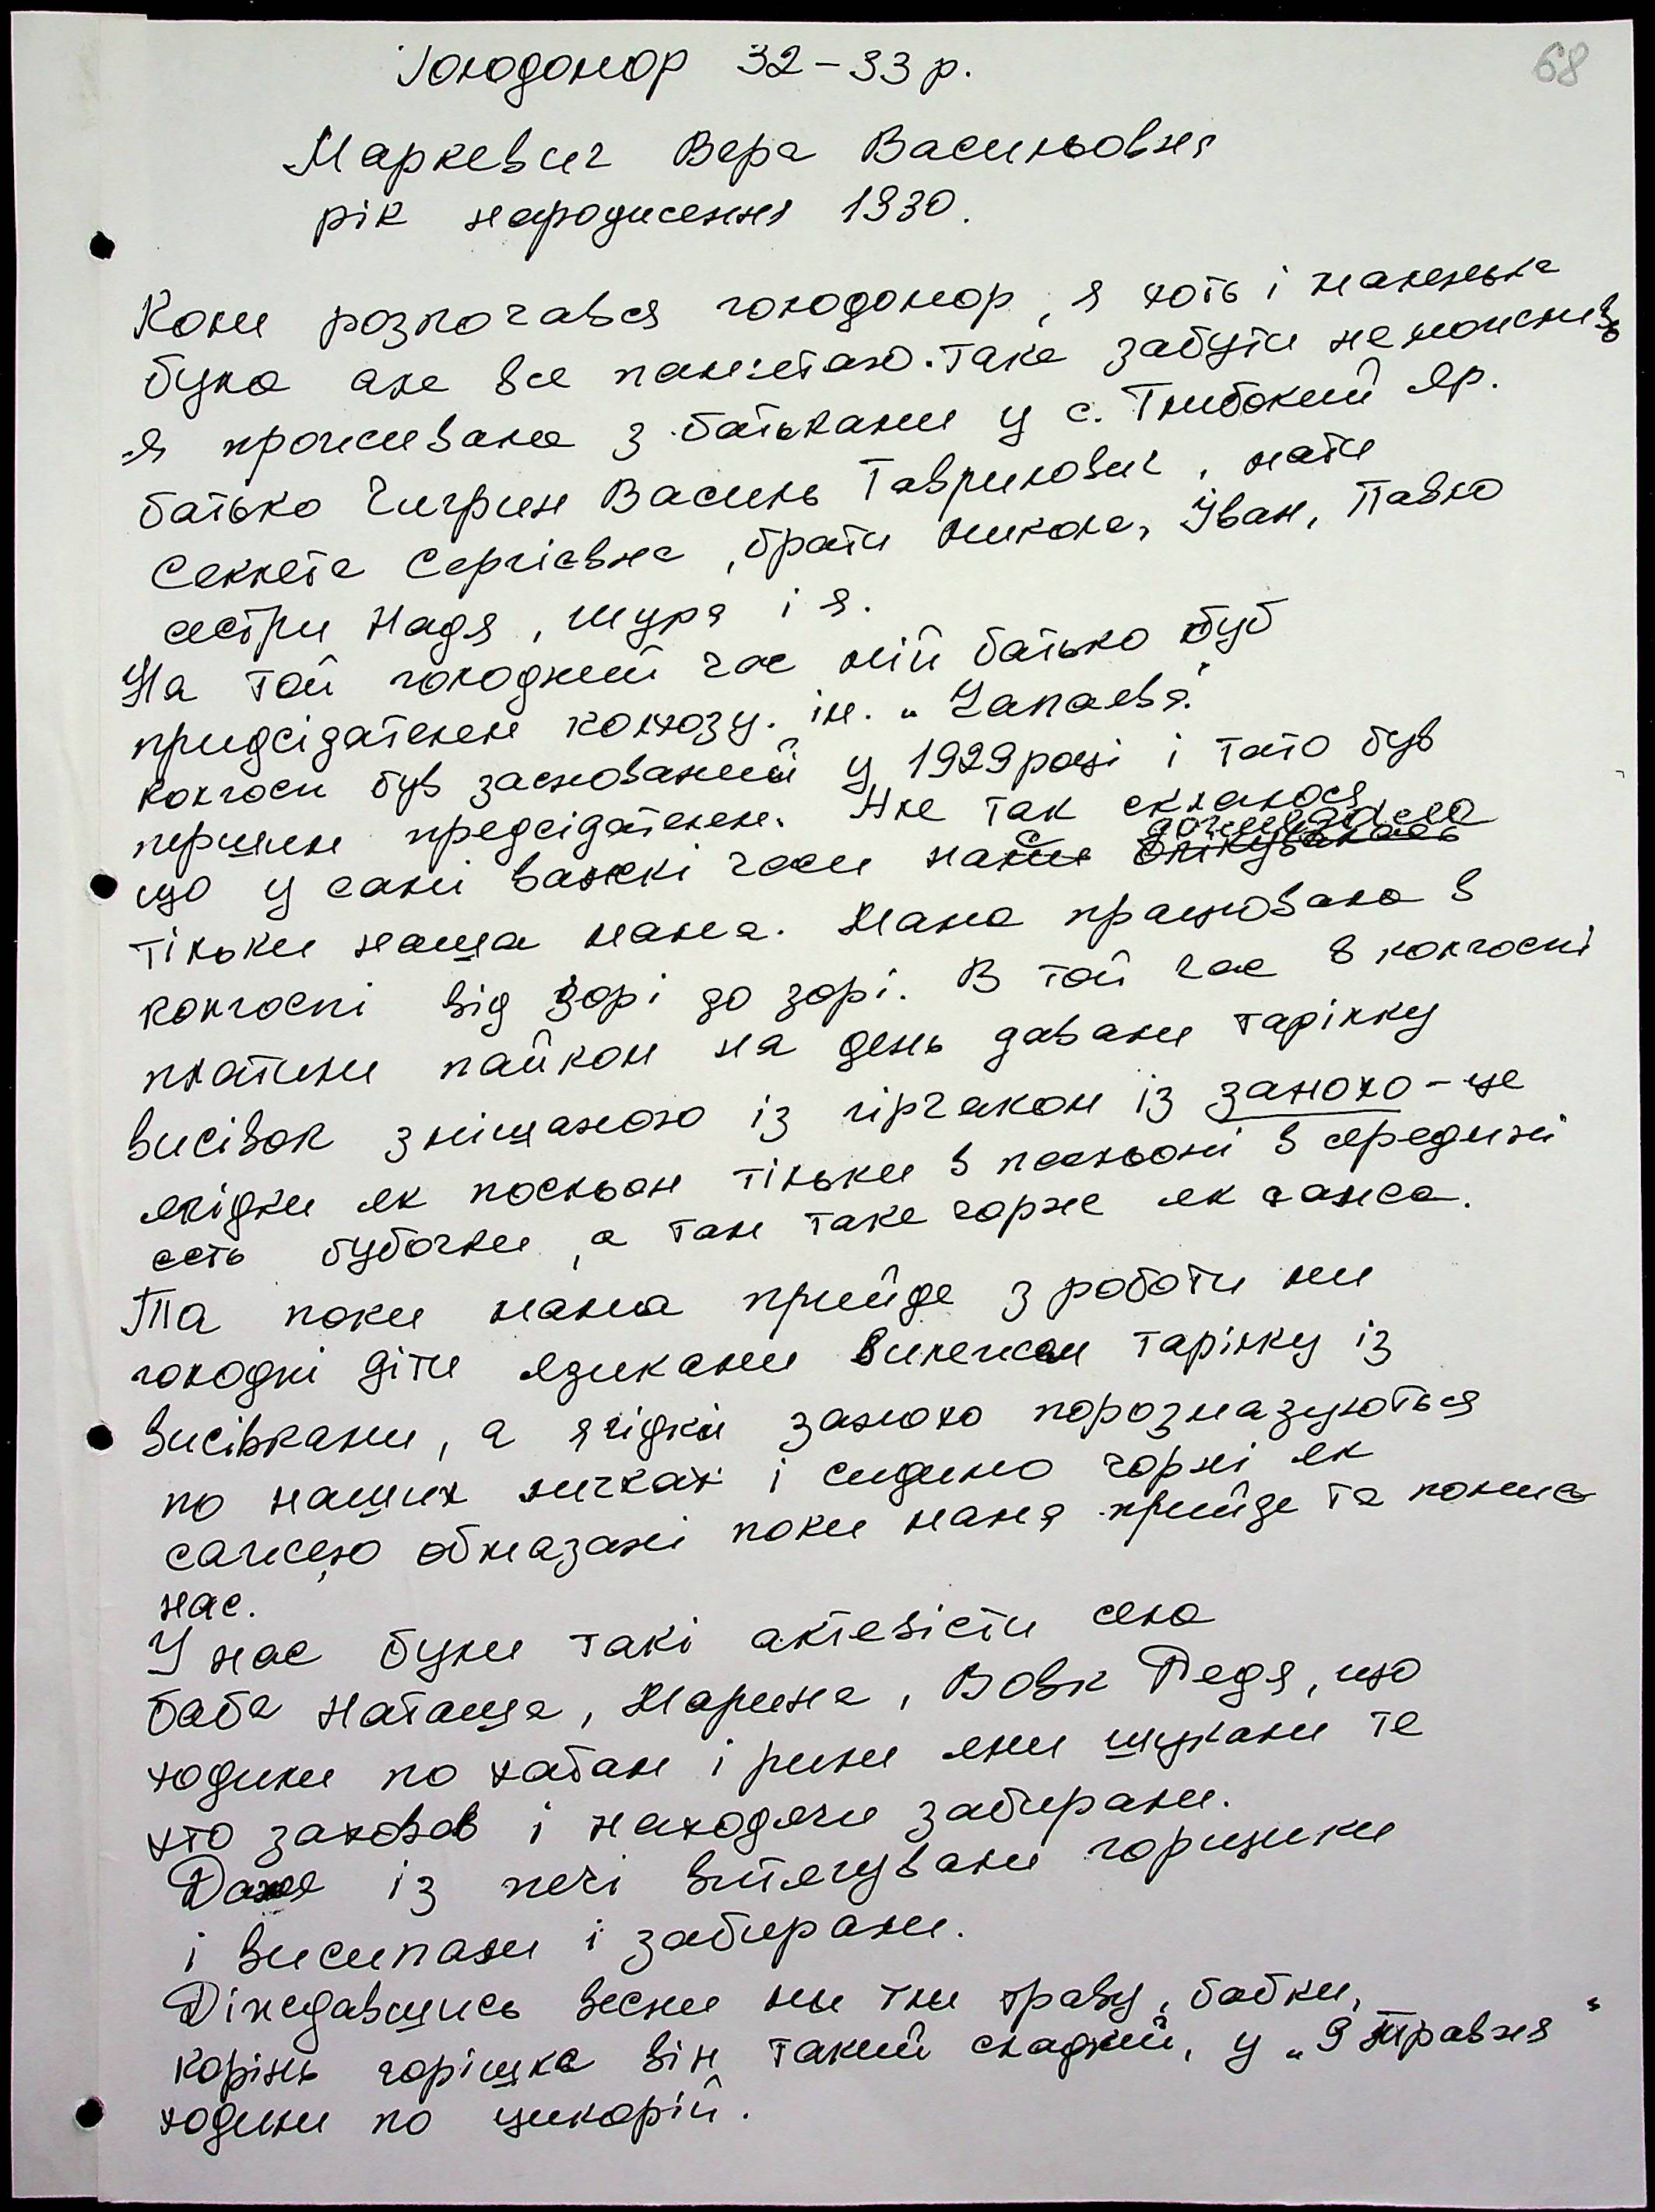 Голодомор 32-33 р.
68
Маркевич Вера Васильовня
рік народження 1930.
Коли розпочався голодомор, я хоть і маленька
була але все памʼятаю. Таке забути неможливо
я проживала з батьками у с. Глибокий Яр.
батько Чигрин Василь Гаврилович, мати
Секлета Сергієвна, брати Микола, Іван, Павло
сестри Надя, Шура і я.
На той голодний час мій батько був
придсідателем колхозу. ім. "Чапаєва".
колгосп був заснований у 1929 році і тато був
першим предсідателем. Але так склалося
що у самі важкі часи нами
тільки наша мама. Мама працювала в
колгоспі від зорі до зорі. В той час в колгоспі
платили пайком на день давали тарілку
висівок змішаного із гірчаком із заможо - це
ягідки як посльон тільки в посльоні в середині
есть бубочки, а там таке чорне як сажа.
Та поки мама прийде з роботи ми
голодні діти язиками вилежем тарілку із
висівками, а ягідки порозмазуються
по наших личках і сидимо чорні як
сажею обмазані поки мама прийде та помиє
нас.
У нас були такі актевісти села
баба Наташа, Марина, Вовк Педя, що
ходили по хатам і рили ями шукали те
хто заховав і находячи забирали.
Даже із печі витягували горщики
і висипали і забирали.
Діждавшись весни ми їли траву, бабки,
корінь горішка він такий сладкий, у "9 Травня"
ходили по цикорій.